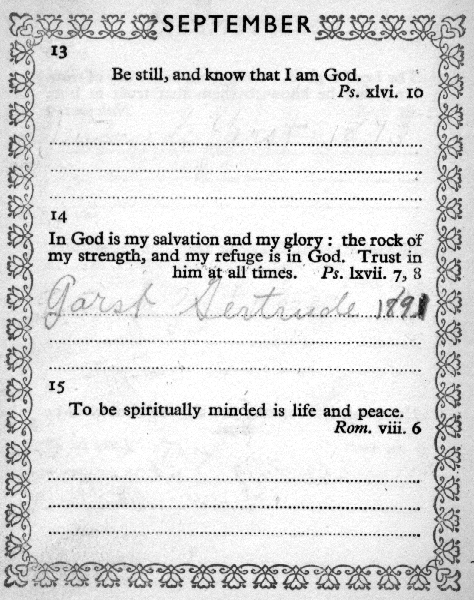 SEPTEMBER
13
Be still, and know that I am God.
Ps. xlvi. 10
14
In God is my salvation and my glory : the rock of
my strength, and my refuge is in God. Trust in
him at all times. Ps. lxvii. 7, 8
Garst Gertrude 1891
15
To be spiritually minded is life and peace.
Rom. viii. 6